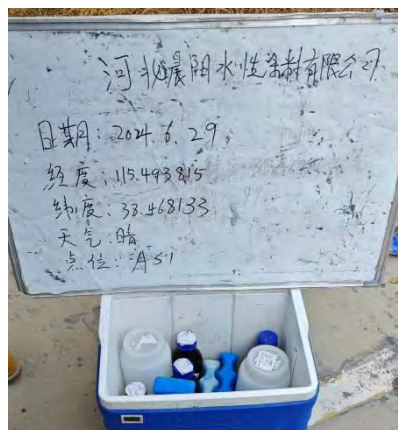 河北晨阳水性涂料有限公司
日期: 2024.6.29
经度: 115.493815
纬度: 38.468133
天气: 晴
点位: AS1